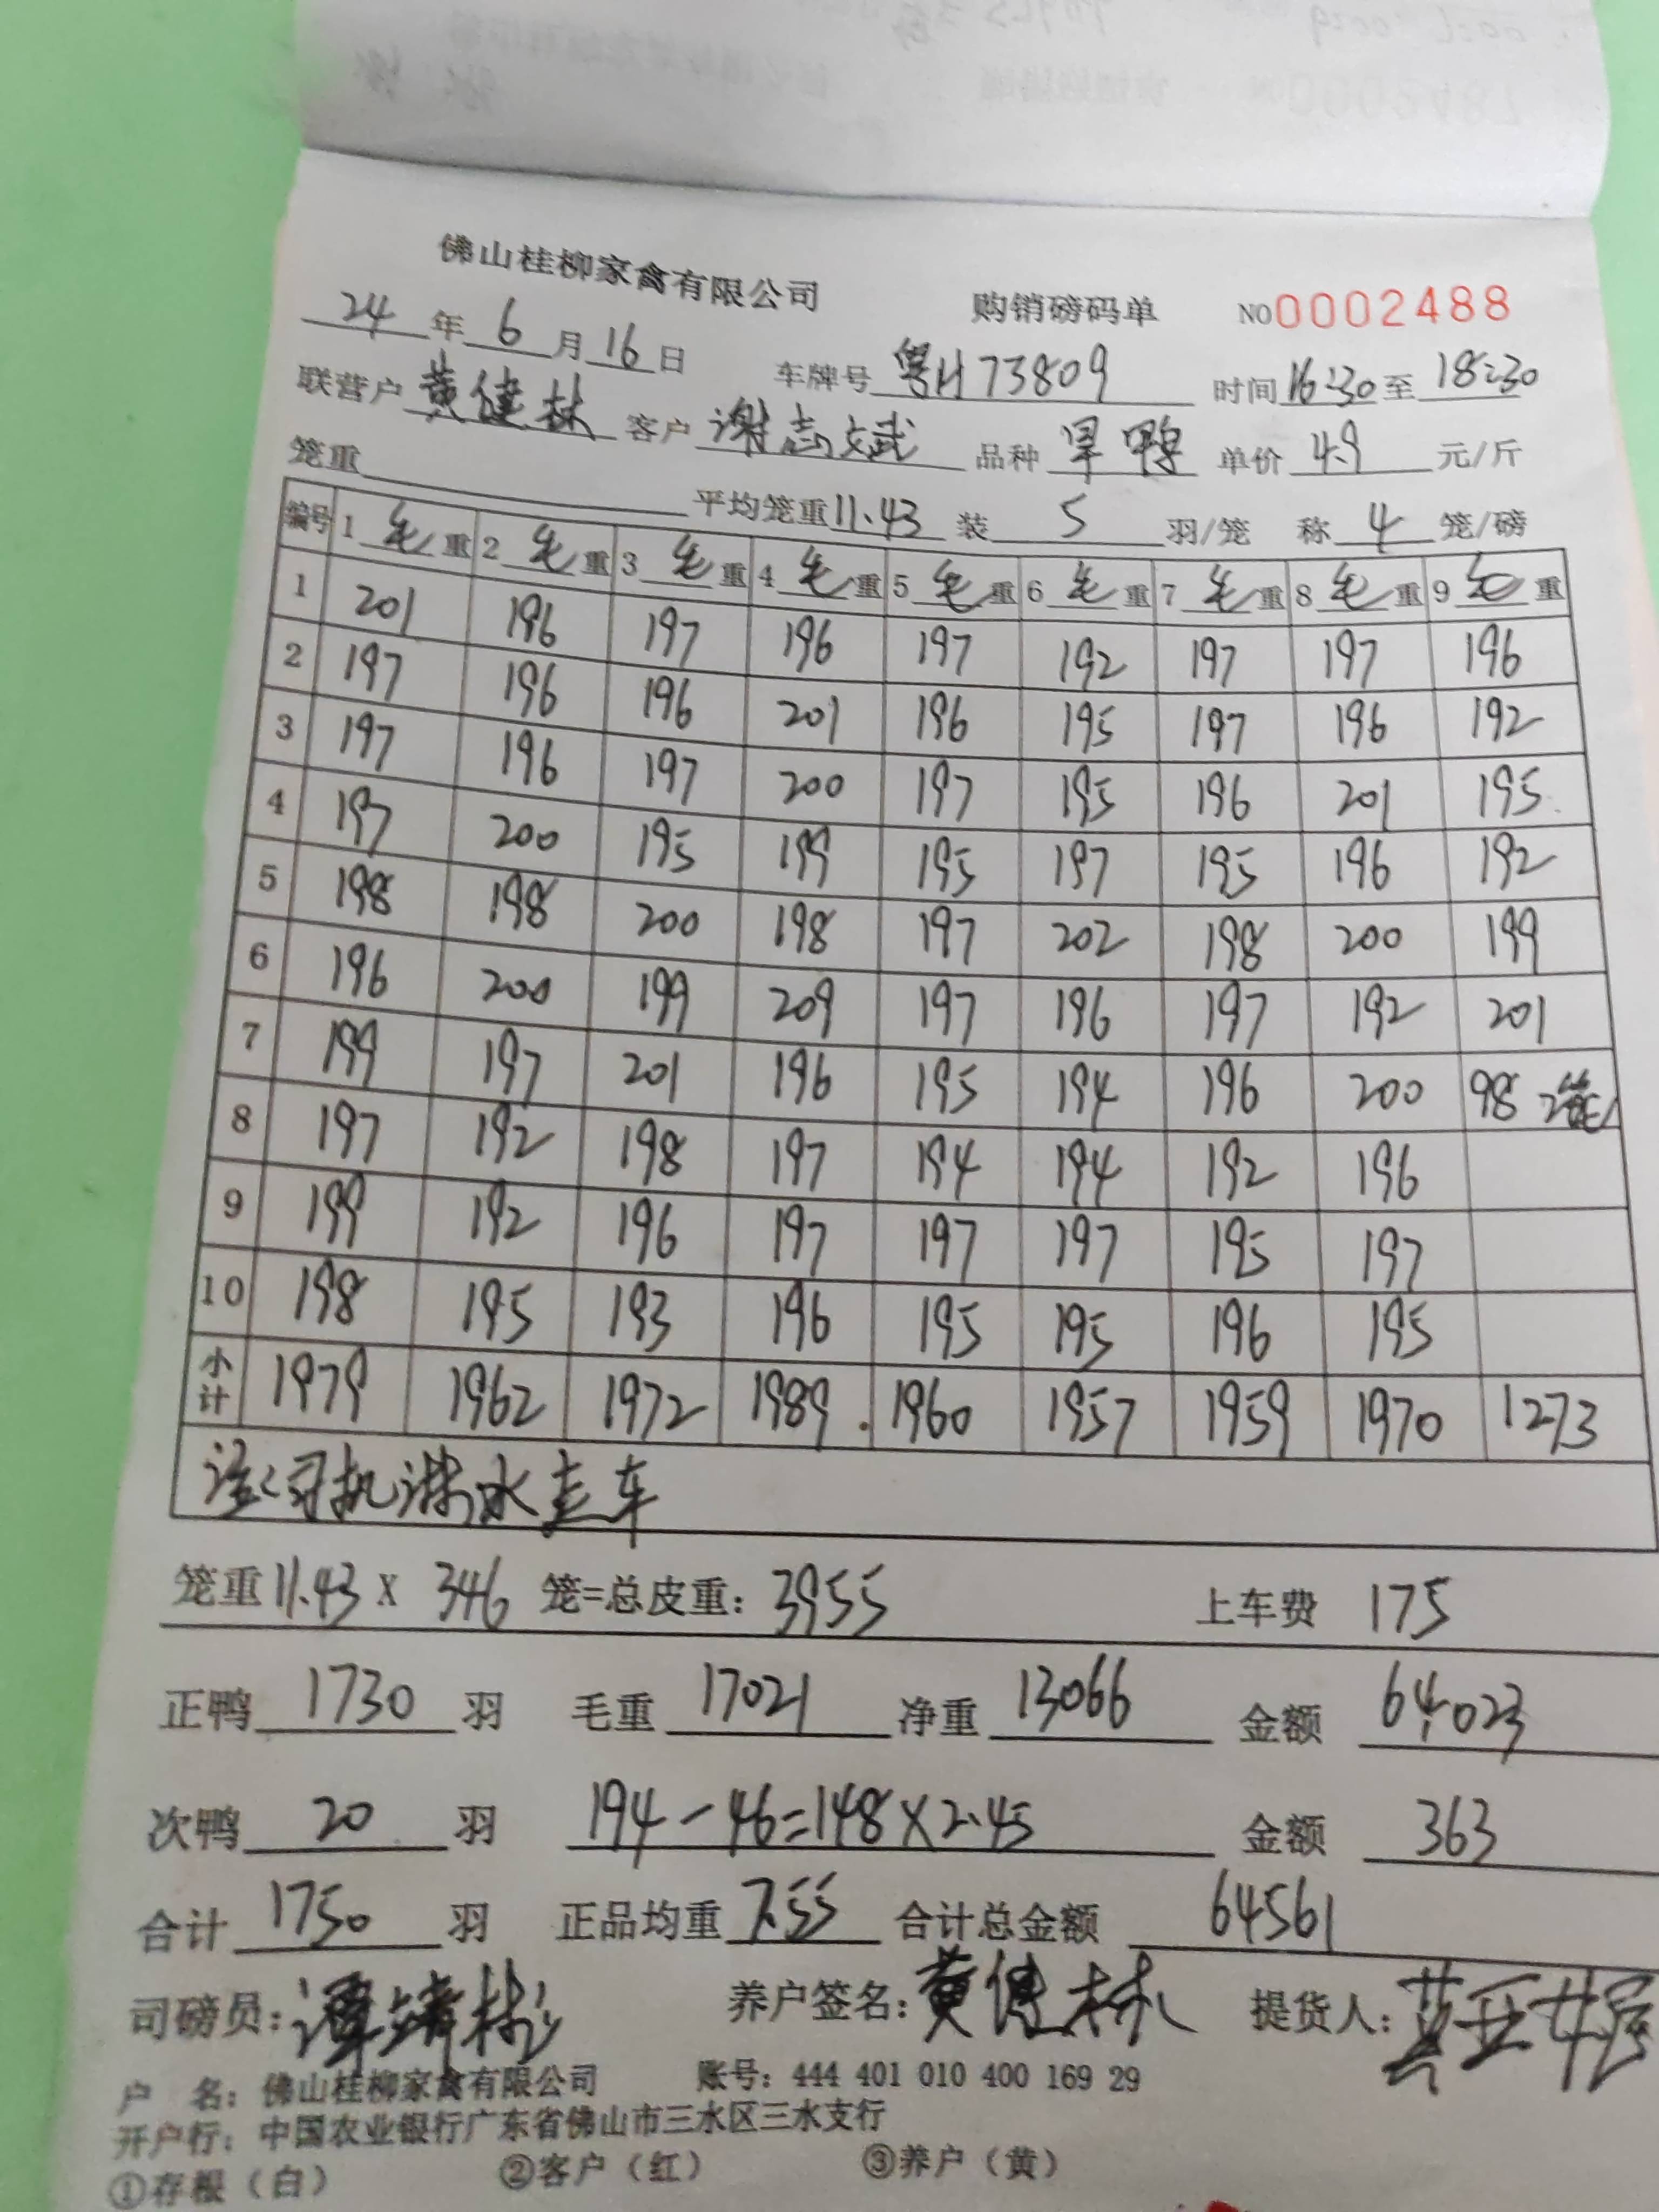 佛山桂柳家禽有限公司 购销磅码单 NO0002488
24年6月16日 车牌号 粤H73809 时间16:30至18:30
联营户 黄健林 客户 谢志斌 品种 旱鸭 单价 4.9 元/斤
笼重 平均笼重11.43 装 5 羽/笼 称 4 笼/磅
编号 1毛重 2毛重 3毛重 4毛重 5毛重 6毛重 7毛重 8毛重 9毛重
1 201 196 197 196 197 192 197 197 196
2 197 196 196 201 196 195 197 196 192
3 197 196 197 200 197 195 196 201 195
4 197 200 195 199 195 197 195 196 192
5 198 198 200 198 197 202 198 200 199
6 196 200 199 209 197 196 197 192 201
7 199 197 201 196 195 194 196 200 98 2笼
8 197 192 198 197 194 194 192 196
9 199 192 196 197 197 197 195 197
10 198 195 193 196 195 195 196 195
小计 1979 1962 1972 1989 1960 1957 1959 1970 1273
司机淋水走车
笼重11.43X 346 笼=总皮重: 3955 上车费 175
正鸭 1730 羽 毛重 17021 净重 13066 金额 64023
次鸭 20 羽 194-46=148X2.45 金额 363
合计 1750 羽 正品均重 7.55 合计总金额 64561
司磅员: 养户签名: 黄健林 提货人:
户 名: 佛山桂柳家禽有限公司 账号: 444 401 010 400 169 29
开户行: 中国农业银行广东省佛山市三水区三水支行
①存根(白) ②客户(红) ③养户(黄)